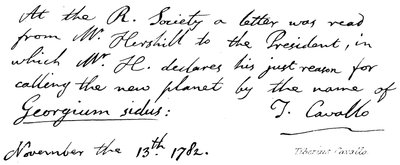 At the R. Society a letter was read
from Mr. Hershill to the President, in
which Mr. H. declares his just reason for
calling the new planet by the name of
Georgium sidus:
T. Cavallo
November the 13th. 1782.
Tiberius Cavallo